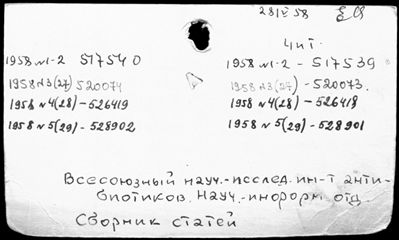 28/V 58
Чит.
1958 №1-2 517540
1958 №1-2 - 517539
1958 №3(27) 520074
1958 №3(27) - 520073.
1958 №4(28) - 526419
1958 №4(28) - 526418
1958 №5(29) - 528902
1958 №5(29) - 528901
Всесоюзный науч.-исслед. ин-т анти-
биотиков. Науч.-информ. отд.
Сборник статей